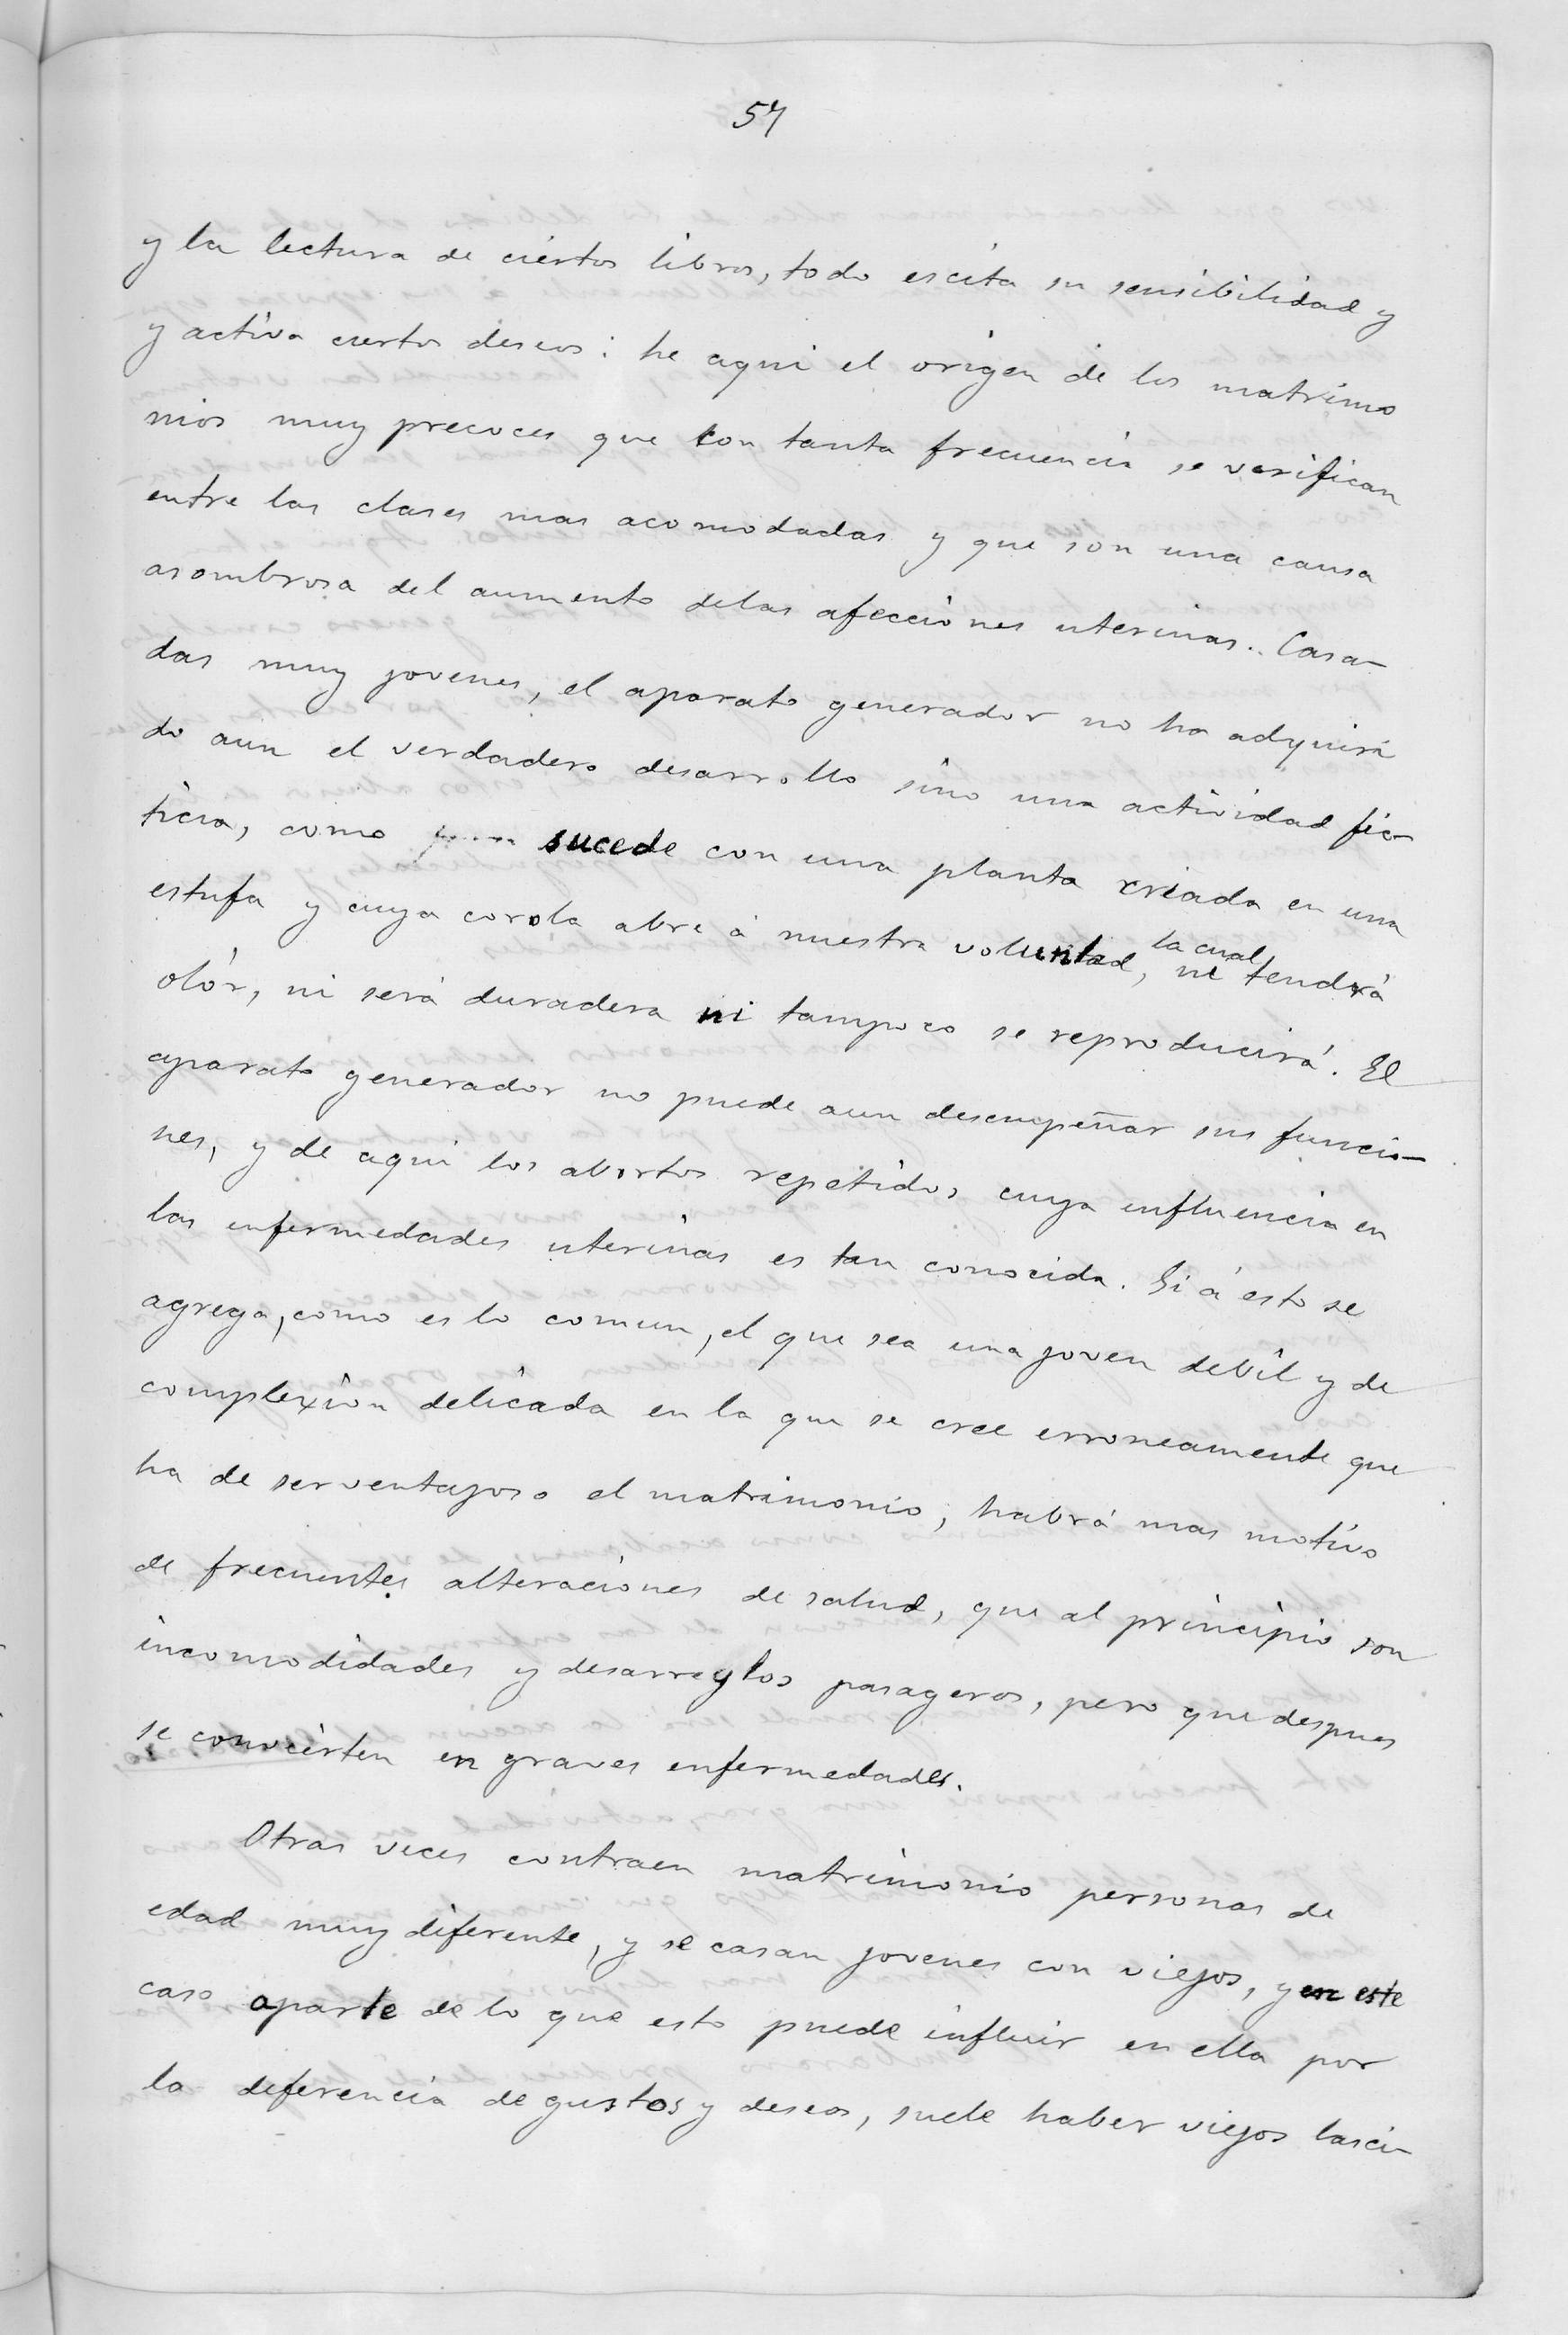 57
y la lectura de ciertos libros, todo escita su sensibilidad y
y activa ciertos deseos: he aqui el origen de los matrimo
nios muy precoces que con tanta frecuencia se verifican
entre las clases mas acomodadas y que son una causa
asombrosa del aumento delas afecciones uterinas. Casa-
das muy jovenes, el aparato generador no ha adquiri
do aun el verdadero desarrollo sino una actividad fic-
ticia, como sucede con una planta criada en una
estufa y cuya corola abre á nuestra voluntad, la cual ni tendrá
olór, ni será duradera ni tampoco se reproducirá. El
aparato generador no puede aun desempeñar sus funcio-
nes, y de aqui los abortos repetidos, cuya influencia en
las enfermedades uterinas es tan conocida. Si á esto se
agrega, como es lo comun, el que sea una joven debil y de
complexion delicada en la que se cree erroneamente que
ha de ser ventajoso el matrimonio, habrá mas motivo
de frecuentes alteraciones de salud, que al principio son
incomodidades y desarreglos pasageros, pero que despues
se convierten en graves enfermedades.
Otras veces contraen matrimonio personas de
edad muy diferente, y se casan jovenes con viejos, y en este
caso aparte de lo que esto puede influir en ella por
la diferencia de gustos y deseos, suele haber viejos lasci-